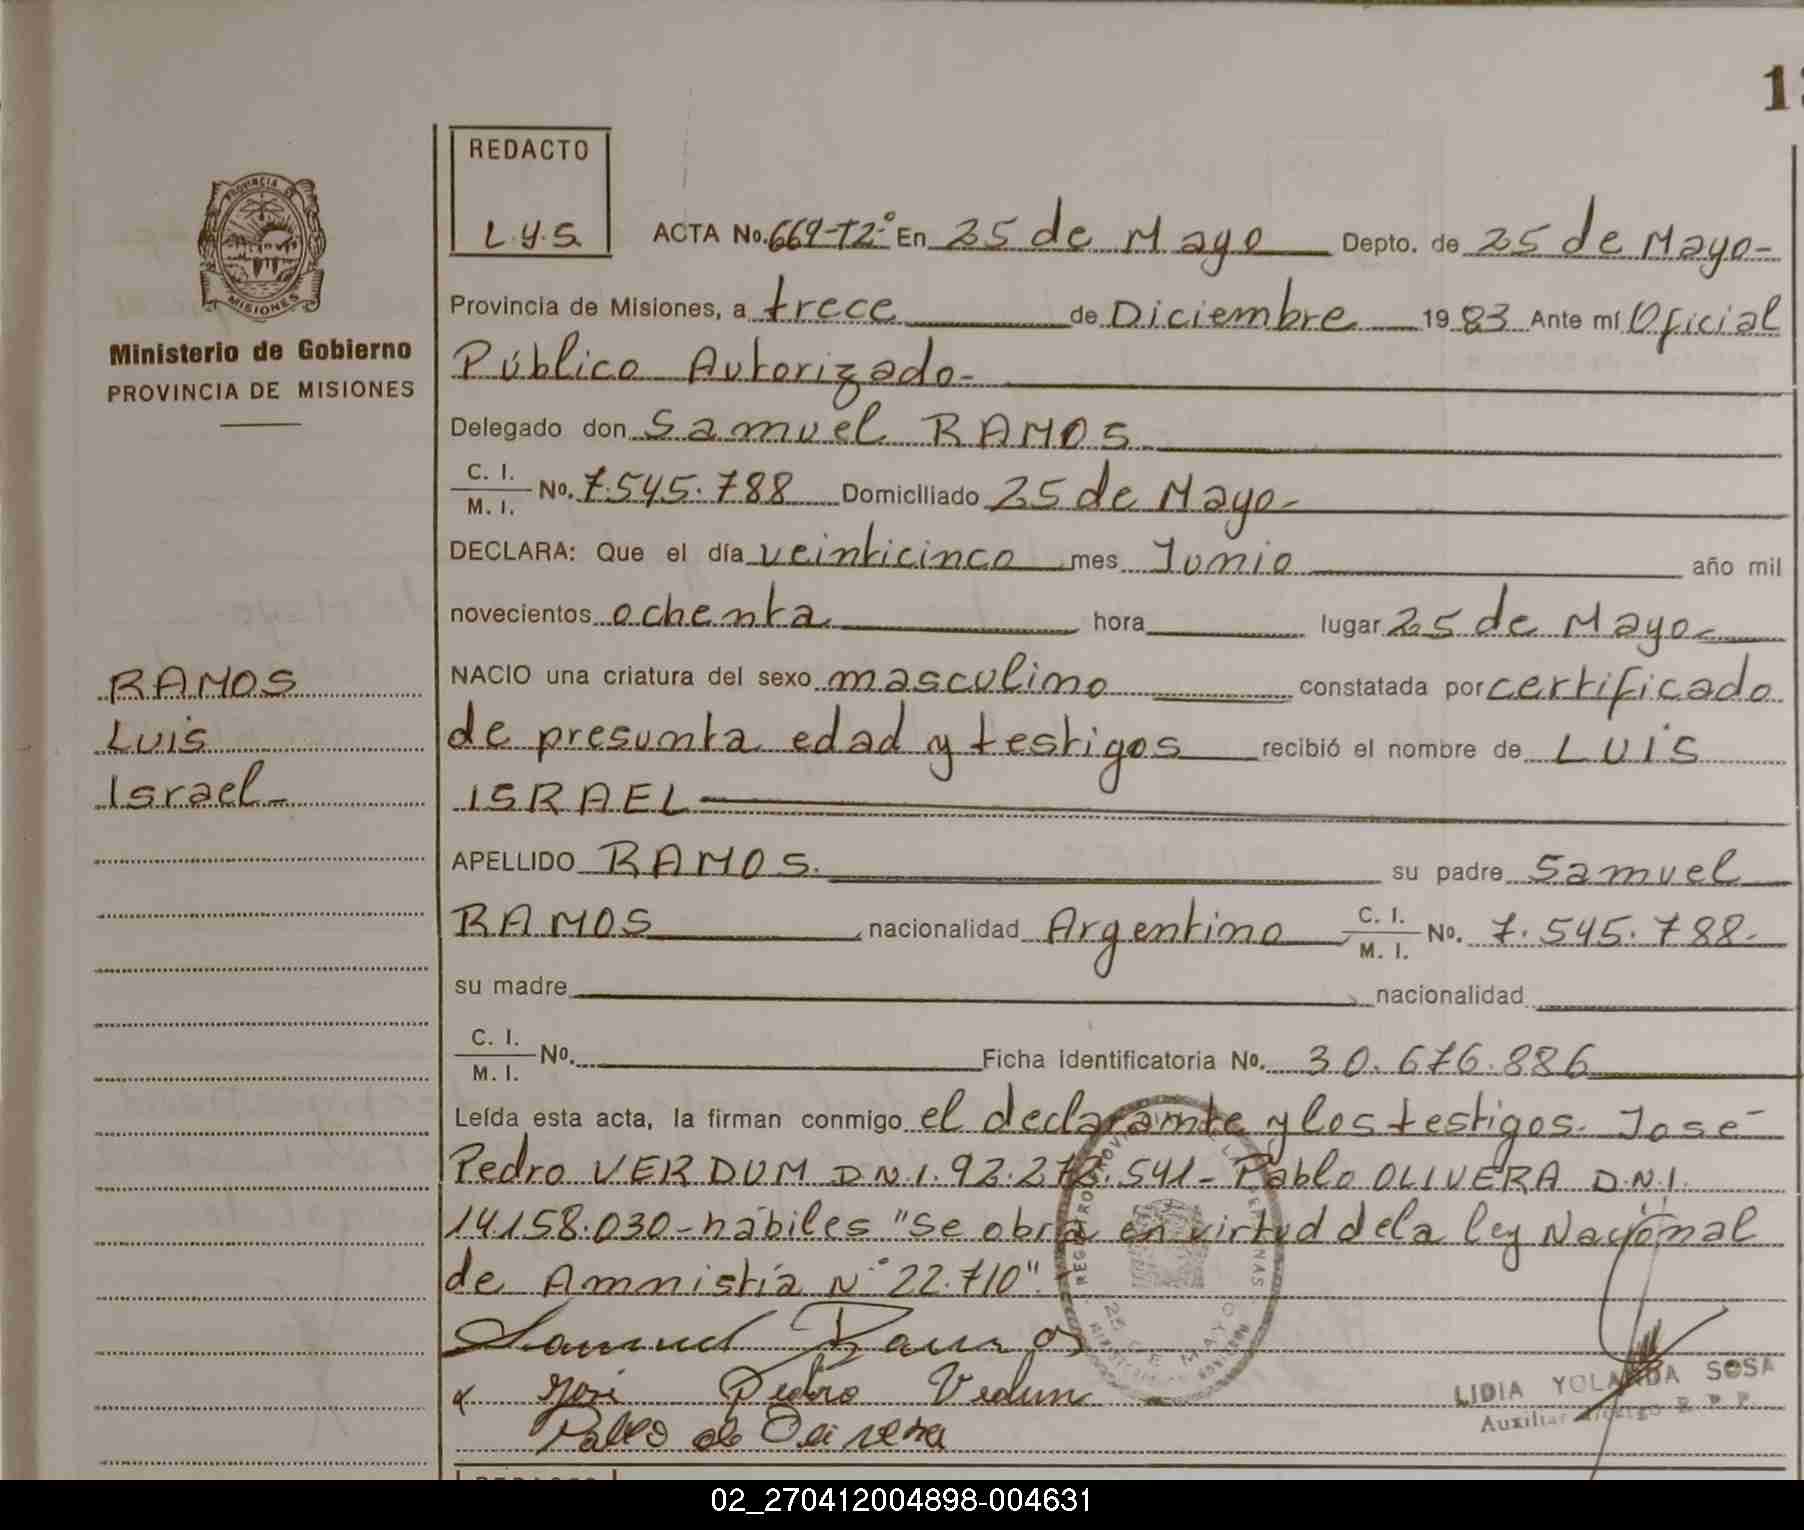 1
REDACTO
L.Y.S.
ACTA No. 669-T2° En 25 de Mayo Depto. de 25 de Mayo-
PROVINCIA DE
MISIONES
Provincia de Misiones, a trece de Diciembre 1983 Ante mí Oficial
Ministerio de Gobierno
PROVINCIA DE MISIONES
Público Autorizado-
Delegado don Samuel RAMOS
C. I.
M. I. No. 7.545.788 Domiciliado 25 de Mayo-
DECLARA: Que el día veinticinco mes Junio año mil
novecientos ochenta hora lugar 25 de Mayo-
RAMOS
Luis
Israel-
NACIO una criatura del sexo masculino constatada por certificado
de presunta edad y testigos recibió el nombre de LUIS
ISRAEL
APELLIDO RAMOS. su padre Samuel
RAMOS nacionalidad Argentino C. I. M. I. No. 7.545.788-
su madre nacionalidad
C. I.
M. I. No. Ficha identificatoria No. 30.676.886
Leída esta acta, la firman conmigo el declarante y los testigos. José
Pedro VERDUM D.N.I. 92.272.541- Pablo OLIVERA D.N.I.
14158.030-hábiles "Se obra en virtud de la ley Nacional
de Amnistía N° 22.710"
Samuel Ramos
José Pedro Verdun
Pablo de Olivera
25 DE MAYO
LIDIA YOLANDA SOSA
Auxiliar
02_270412004898-004631